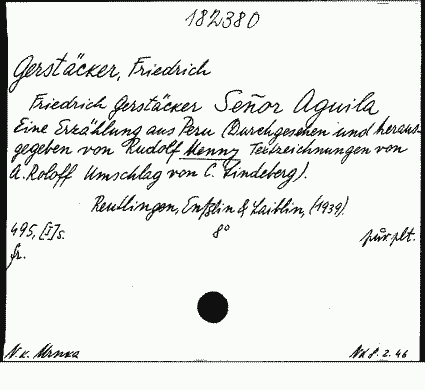 182380
Gerstäcker, Friedrich
Friedrich Gerstäcker Señor Aguila
Eine Erzählung aus Peru (Durchgesehen und heraus-
gegeben von Rudolf Henny Textzeichnungen von
A. Roloff Umschlag von C. Lindeberg).
Reutlingen, Enßlin & Laiblin, (1939).
495, [I] s. 8° pův. plt.
fr.
N. k. Mrnka Nd 8. 2. 46